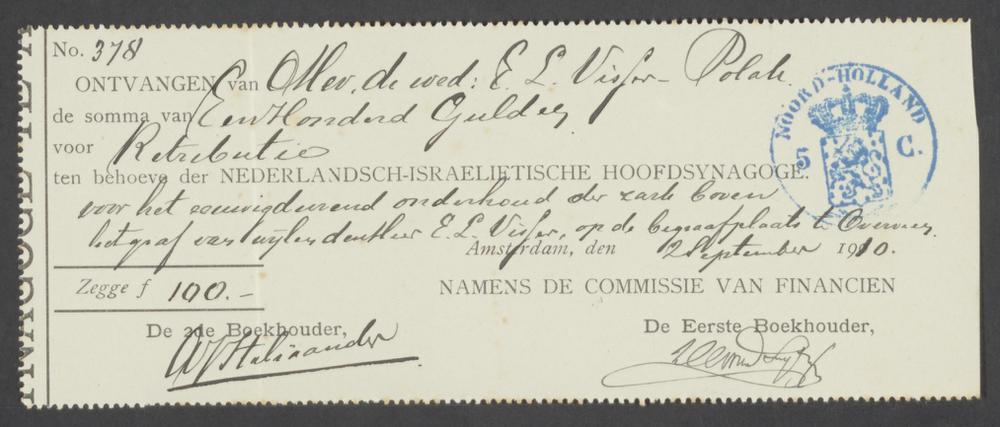 No. 378
ONTVANGEN van Mev. de wed: E. L. Visser-Polak
de somma van Een Honderd Gulden
voor Retributie
ten behoeve der NEDERLANDSCH-ISRAELIETISCHE HOOFDSYNAGOGE.
voor het eeuwigdurend onderhoud der zark boven
het graf van wijlen den Heer E. L. Visser, op de begraafplaats te Overveen.
Amsterdam, den 2 September 1910.
Zegge f 100.-
NAMENS DE COMMISSIE VAN FINANCIEN
De 2de Boekhouder,
De Eerste Boekhouder,
NOORD-HOLLAND
5 C.